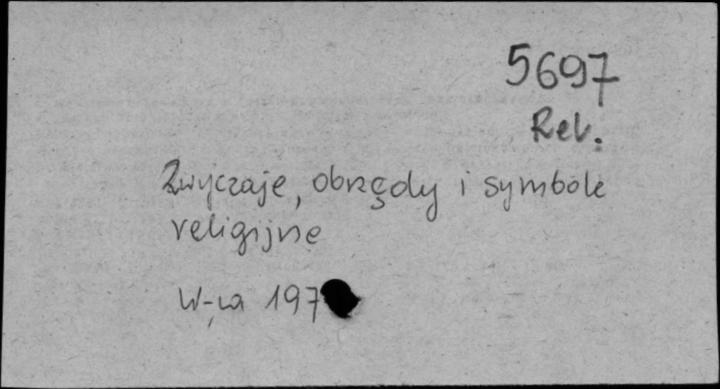 5697
Rel.
Zwyczaje, obrzędy i symbole
religijne
W-wa 197